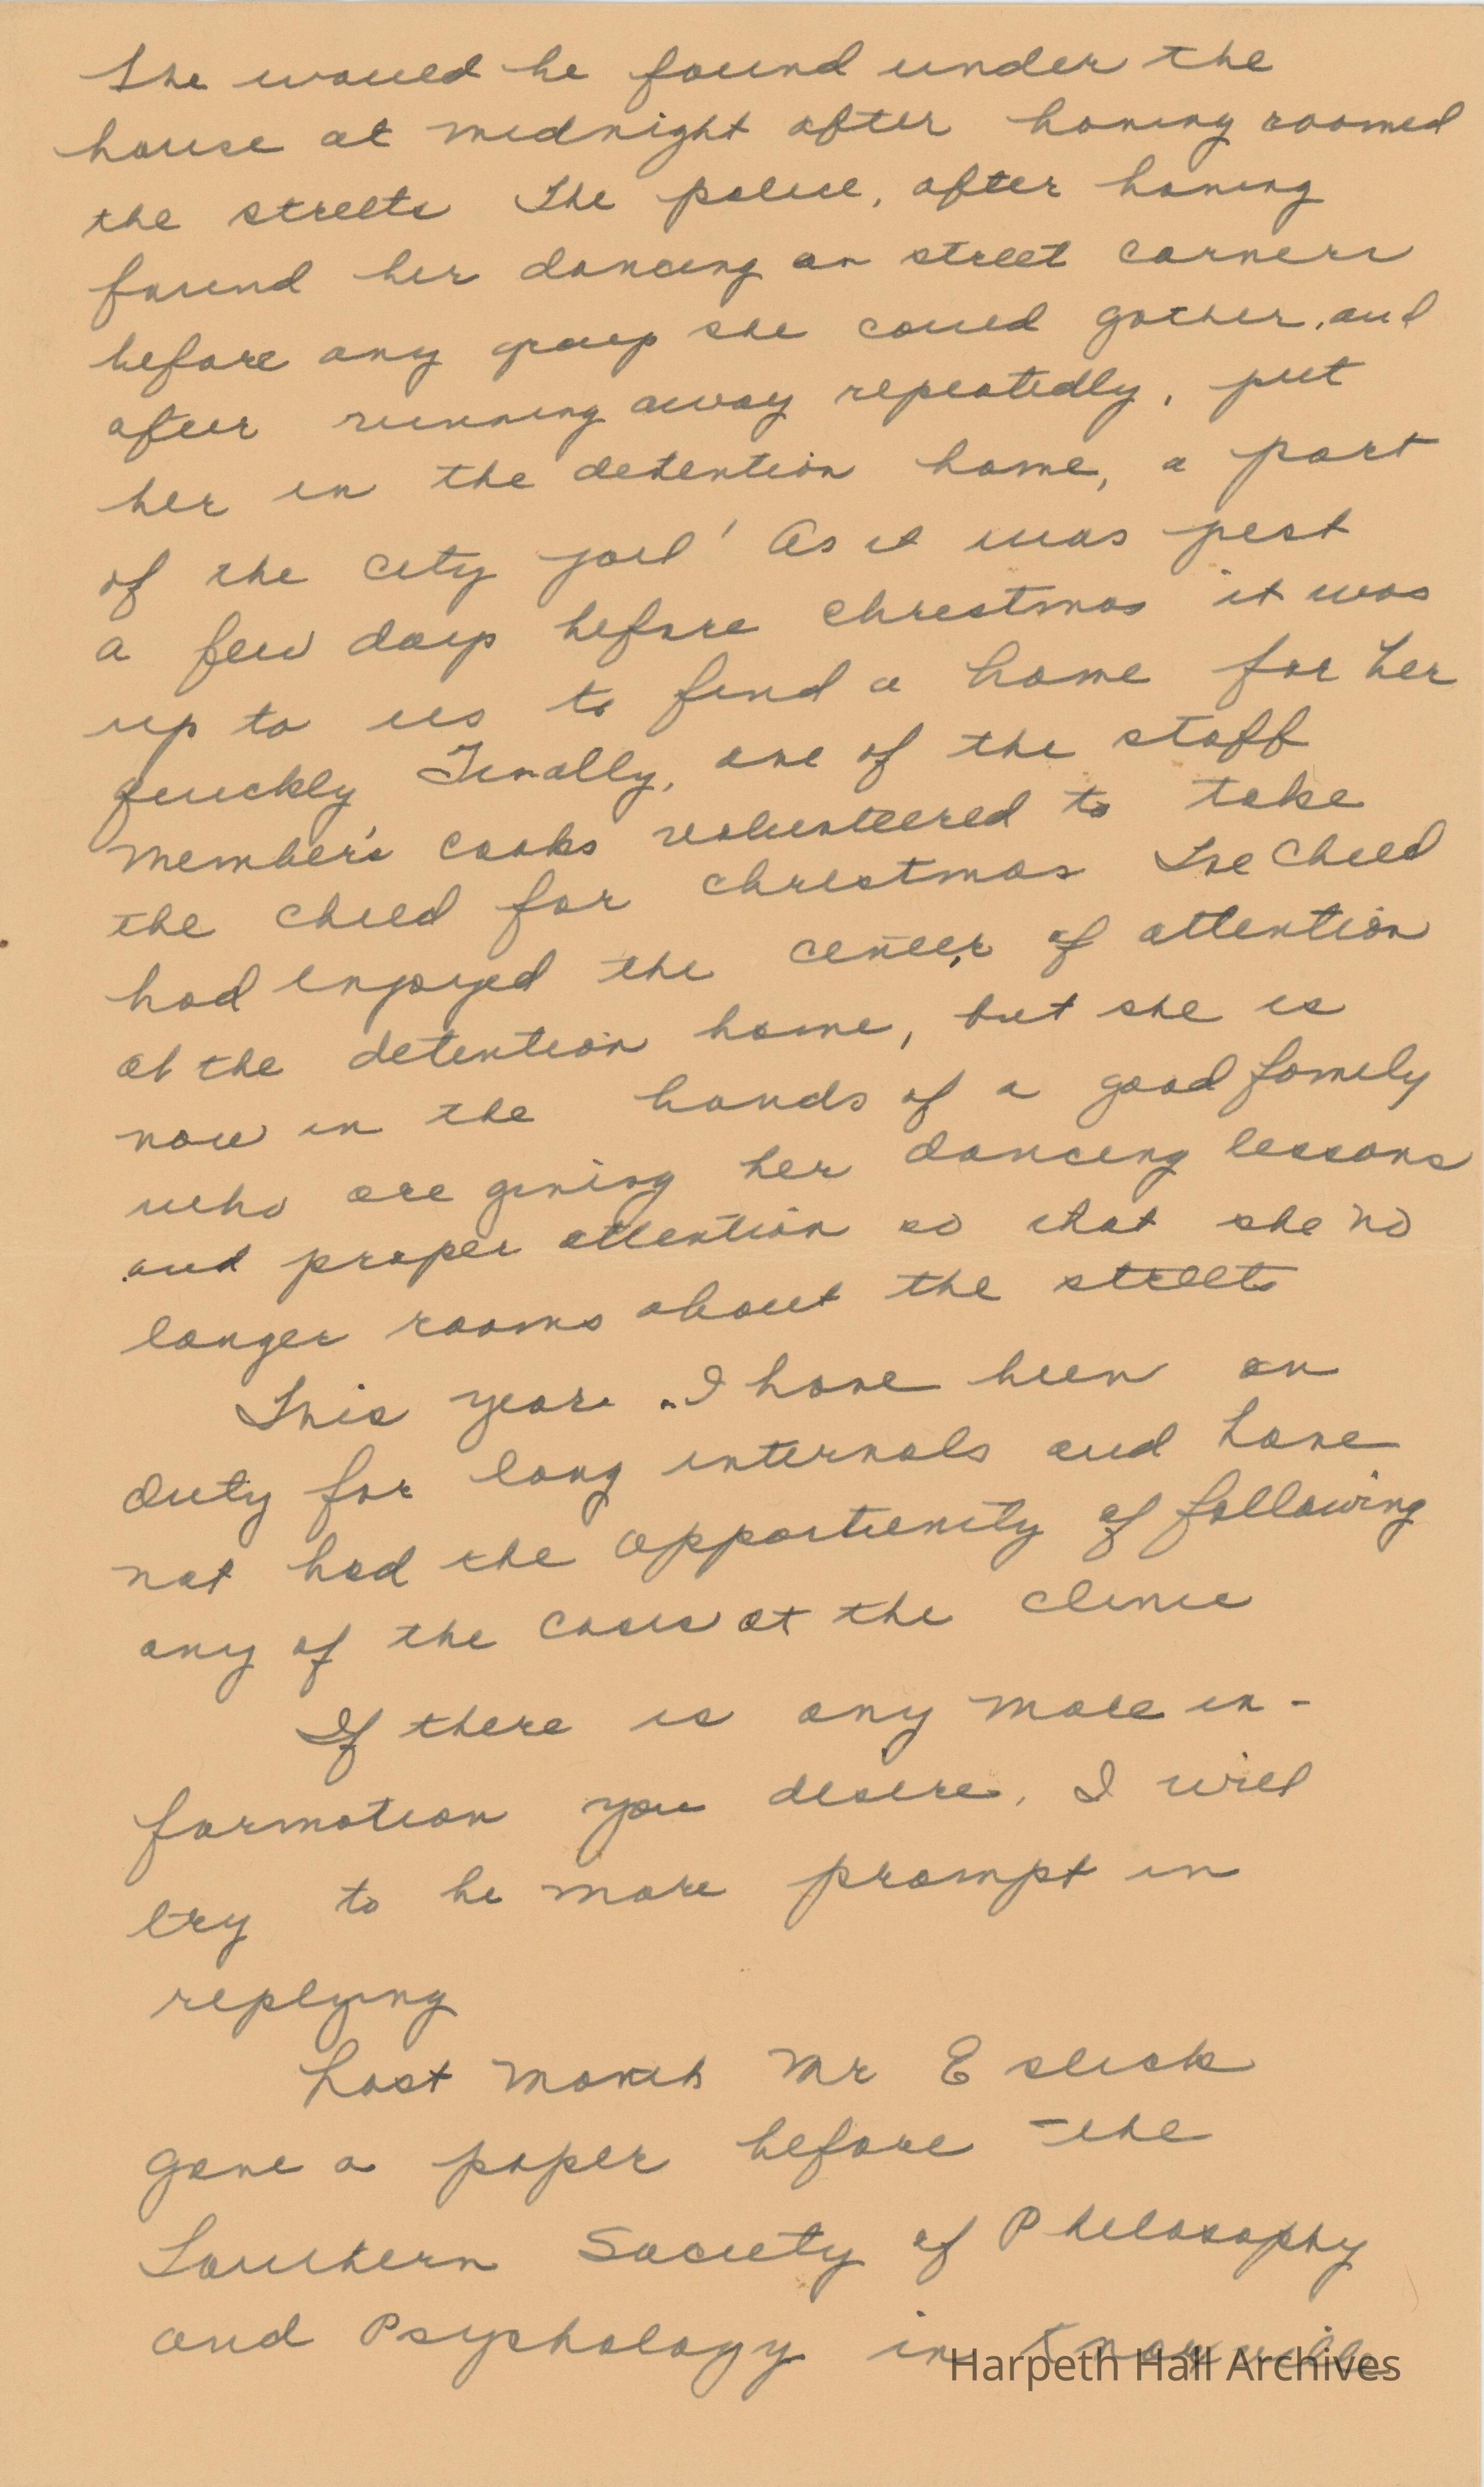 She would be found under the
house at midnight after having roamed
the streets The police, after having
found her dancing on street corners
before any group she could gather, and
after running away repeatedly, put
her in the detention home, a part
of the city jail! As it was just
a few days before Christmas it was
up to us to find a home for her
quickly Finally, one of the staff
member's cooks volunteered to take
the child for Christmas The child
had enjoyed the center of attention
at the detention home, but she is
now in the hands of a good family
who are giving her dancing lessons
and proper attention so that she no
longer roams about the streets
This year I have been on
duty for long intervals and have
not had the opportunity of following
any of the cases at the clinic
If there is any more in-
formation you desire, I will
try to be more prompt in
replying
Last month Mr Eslick
gave a paper before the
Southern Society of Philosophy
and Psychology in Knoxville
Harpeth Hall Archives